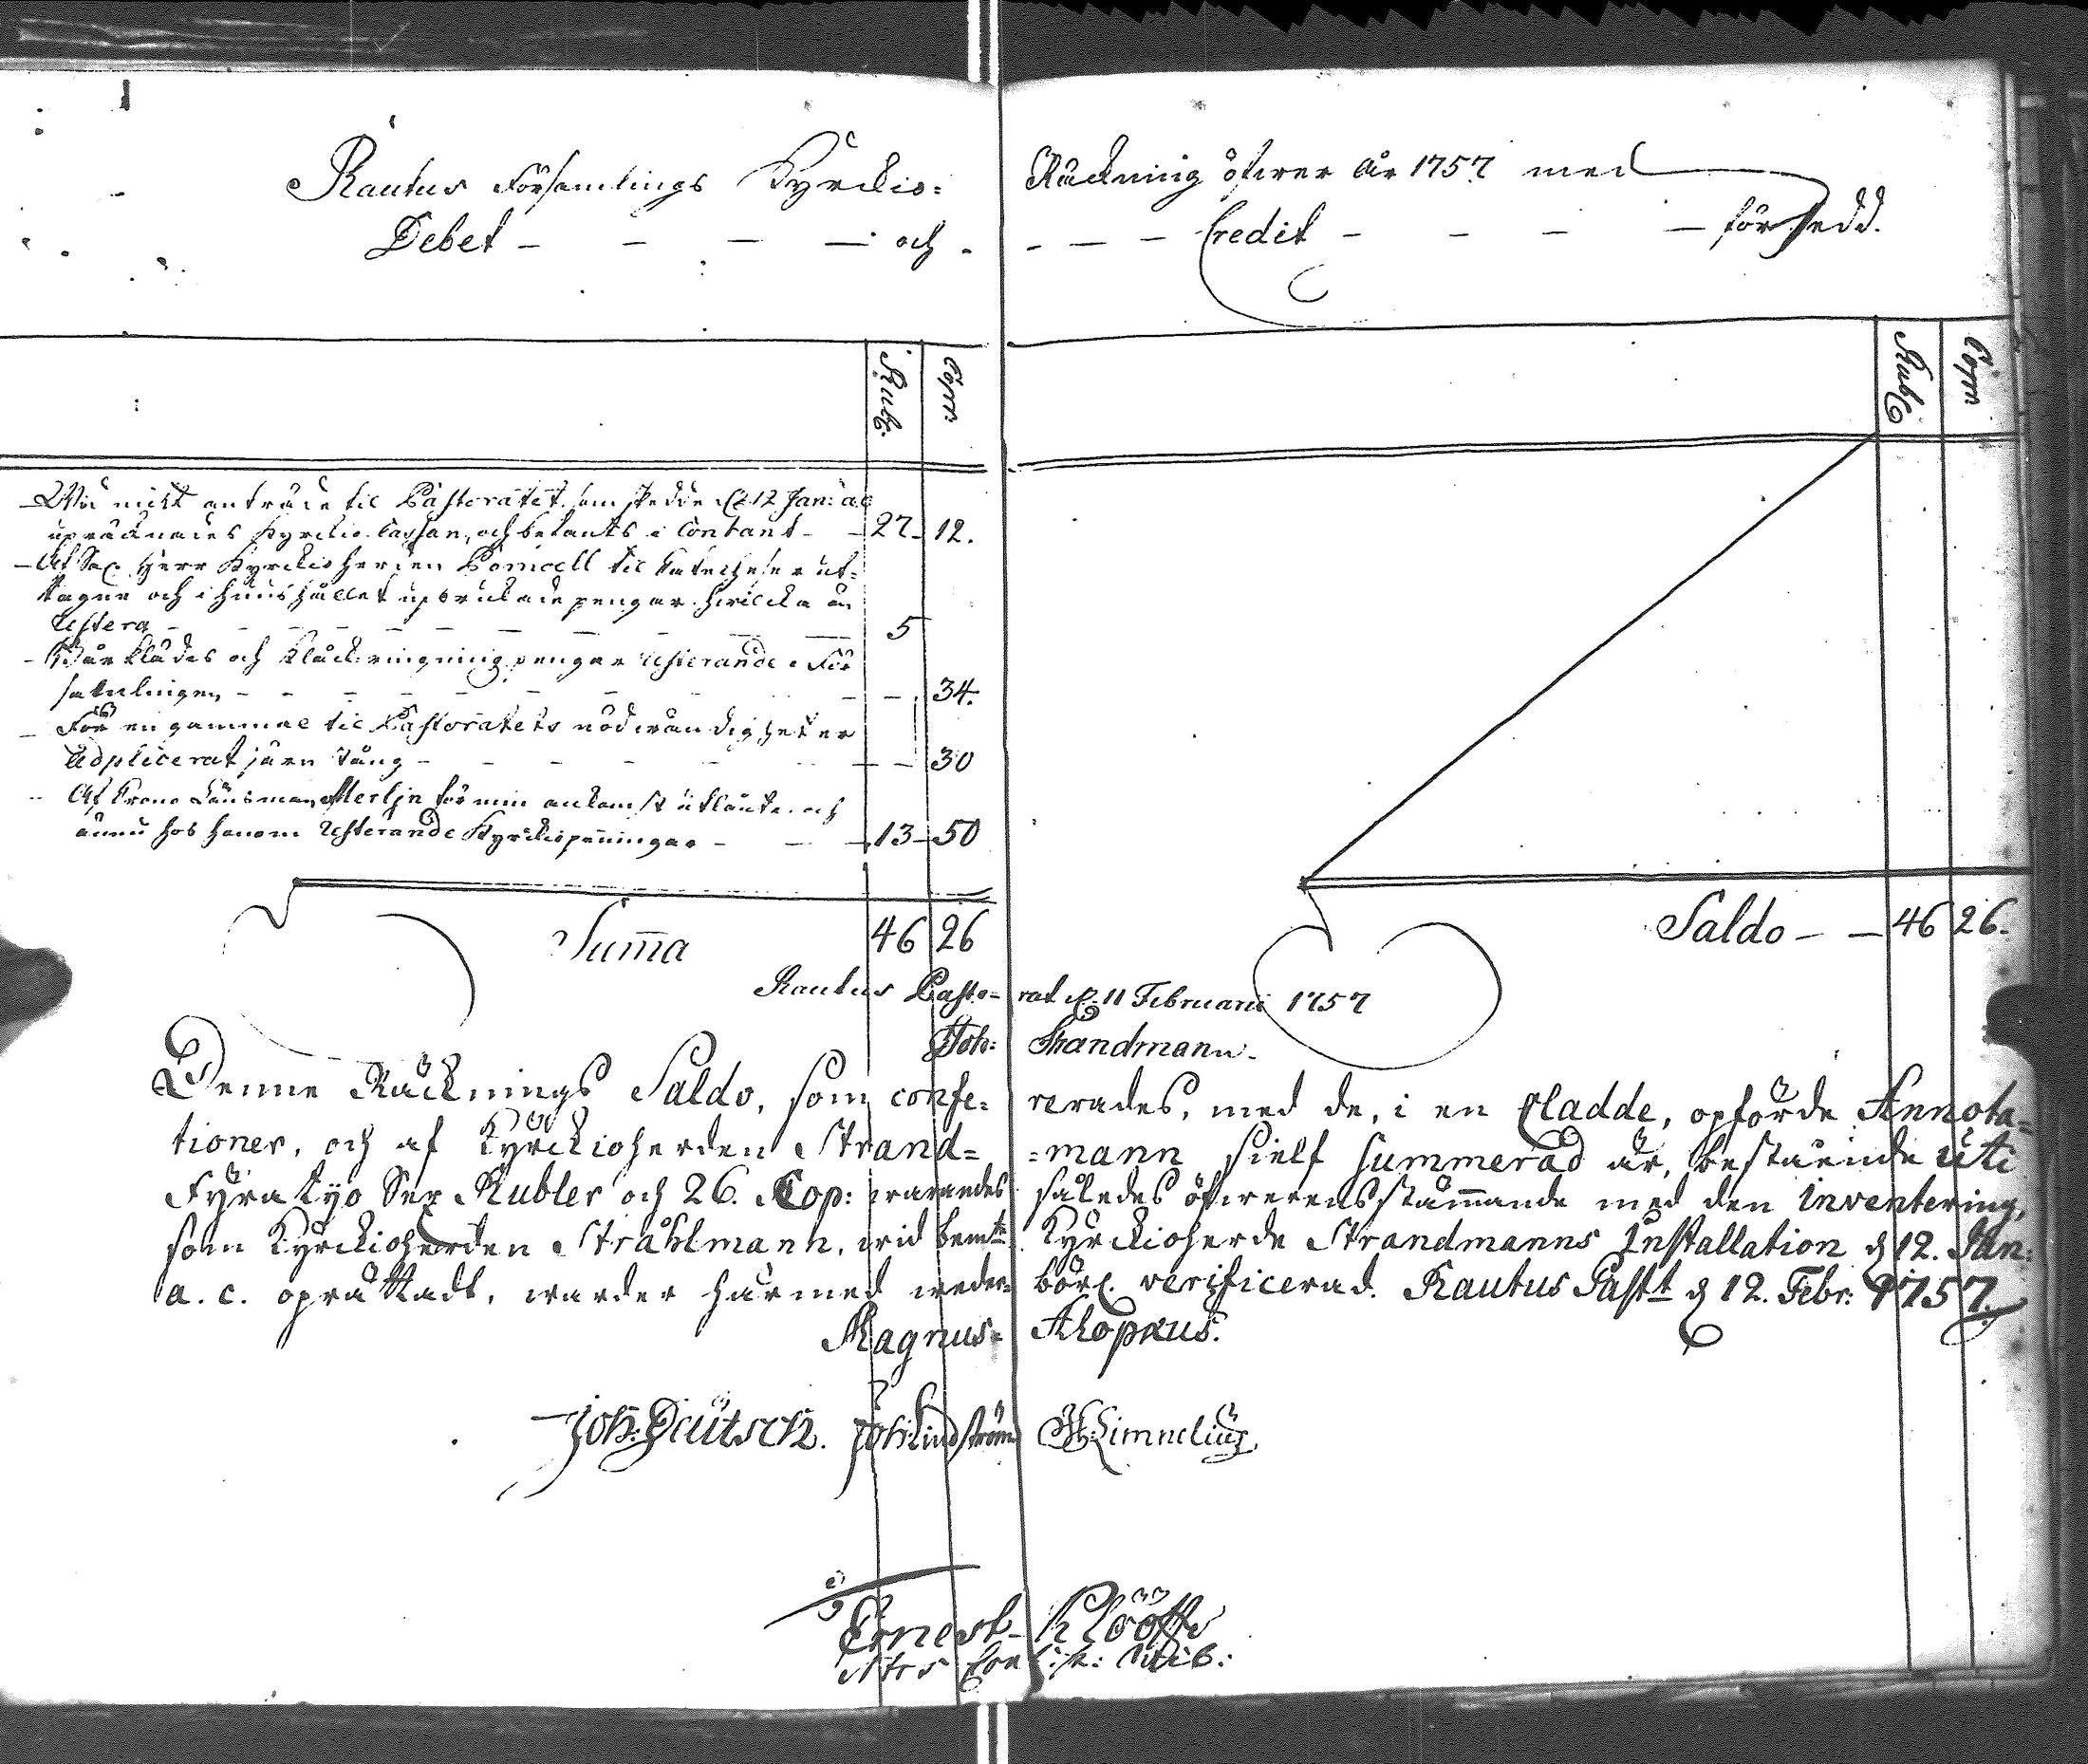 Rautus Församlings Kyrckio= Räckning öfwer År 1757 med
Debet - - - - och - - - - Credit - - - - försedd.
Rub: Cop: Rubl Cop
Wid mitt anträde til Pastoratet, som skedde d. 12 Jan: a.c.
upräcknades Kyrckio Cassan, och befants i Contant - - 27 - 12.
Af Sal. Herr Kyrckioherden Pomoell til Catecheser ut=
tagne och i huushållet upbrukade pengar hwilcka än
restera - - - - - - 5
Bårklädes och Klåckringning pengar resterande i För
samlingen - - - - - - 34.
För en gammal til Pastoratets nödwändigheter
adplicerat järn stång - - - - - 30
Af Crono Länsman Merlin för min ankomst utlånte och
ännu hos honom resterande Kyrckiopenningar - - - 13 - 50
Suma 46 26
Saldo - - 46 26.
Rautus Pasto= rat d. 11 Februarii 1757
Joh: Strandmann.
Denne Räcknings Saldo, som confe= rerades, med de, i en Cladde, opförde Annota=
tioner, och af Kyrckioherden Strand= =mann sielf summerad är, bestående uti
Fyratijo Sex Rubler och 26. Cop: warandes således öfwerensstämmande med den inventering,
som Kyrckioherden Stråhlmann, wid bemte Kyrckioherde Strandmanns Installation d 12. Jan:
a. c. oprättadt, warder härmed weder= börl. verificerad. Rautus Past d 12. Febr: 1757.
Magnus= Alopæus.
Joh: Deutsch. Joh Lindström
Ernest Klööff